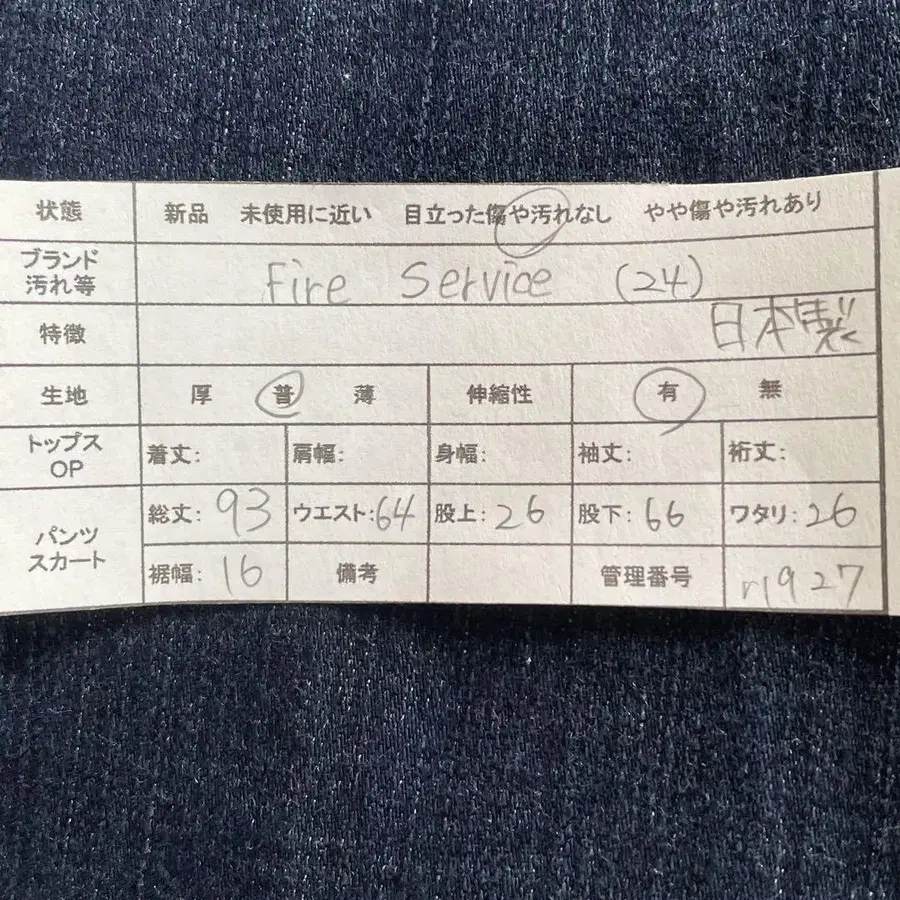 状態 新品 未使用に近い 目立った傷や汚れなし やや傷や汚れあり
ブランド
汚れ等 Fire Service (24)
特徴 日本製
生地 厚 普 薄 伸縮性 有 無
トップス
OP 着丈: 肩幅: 身幅: 袖丈: 裄丈:
パンツ
スカート 総丈: 93 ウエスト: 64 股上: 26 股下: 66 ワタリ: 26
裾幅: 16 備考 管理番号 r1927